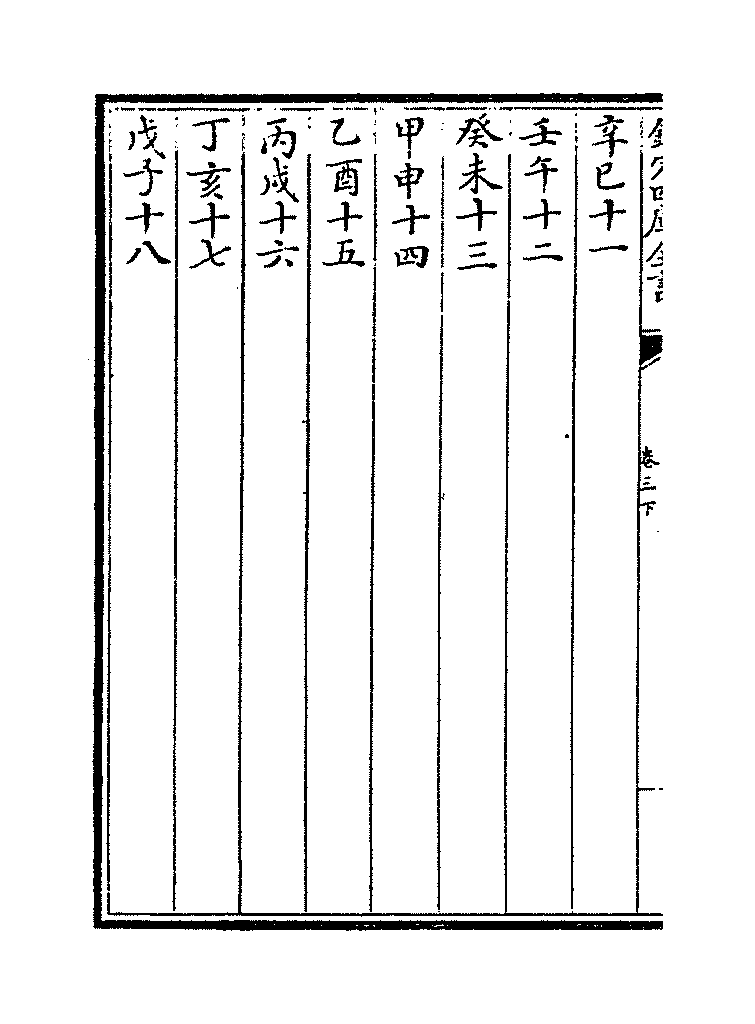 欽定四庫全書
卷三下
辛巳十一
壬午十二
癸未十三
甲申十四
乙酉十五
丙戌十六
丁亥十七
戊子十八